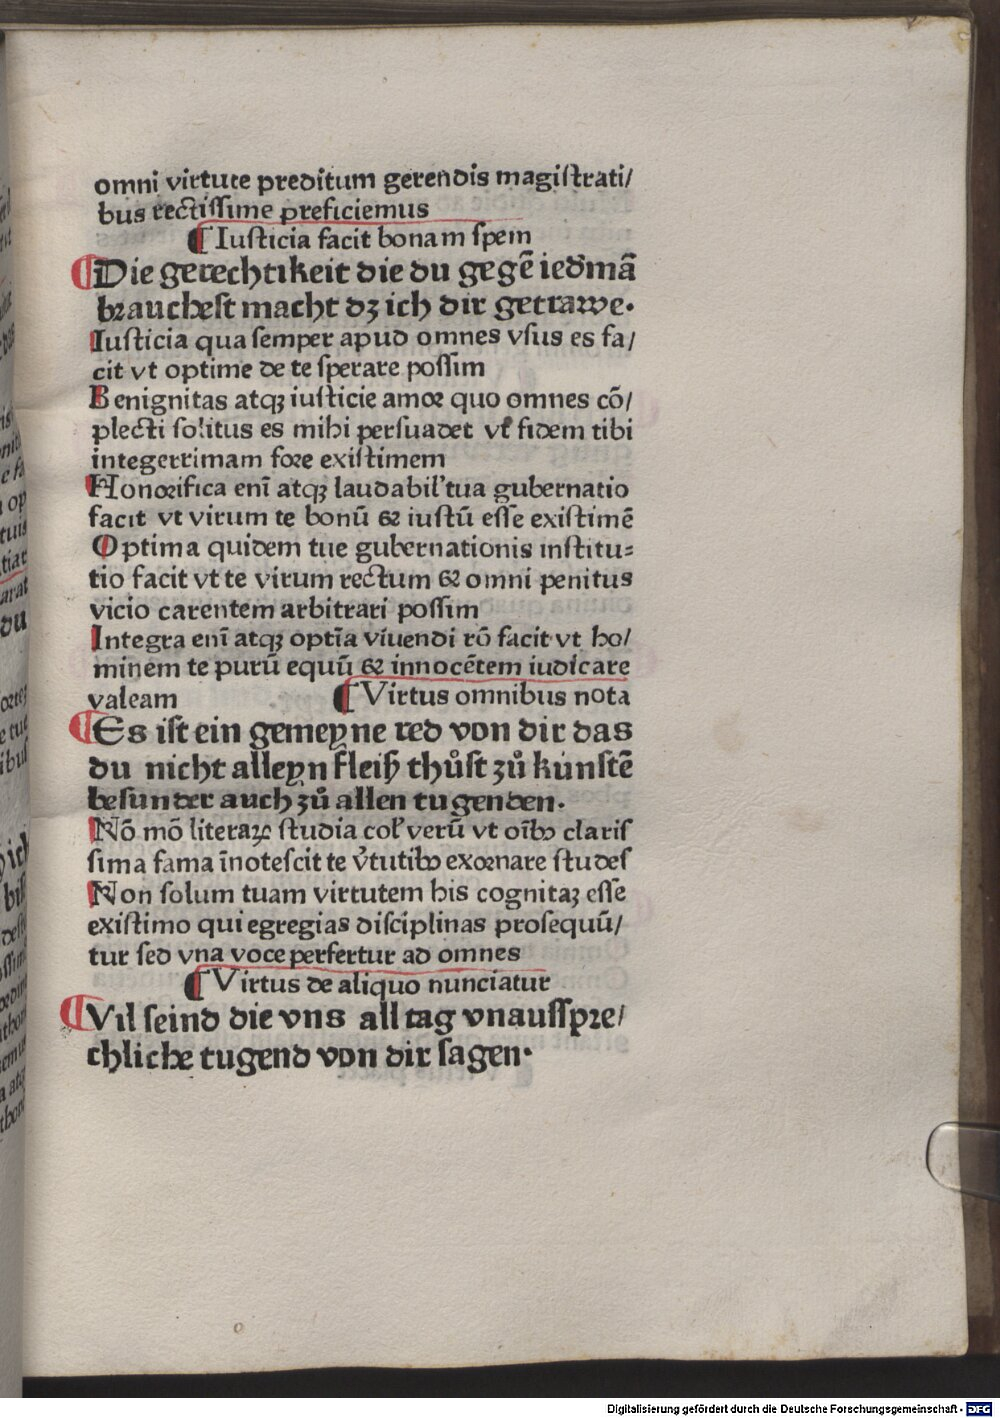 omni virtute preditum gerendis magiſtrati/
bus rectiſſime preficiemus
¶ Iuſticia facit bonam ſpem
¶ Die gerechtikeit die du gegē ieðmā
braucheſt macht dʒ ich dir getrawe.
Iuſticia qua ſemper apud omnes vſus es fa/
cit vt optime de te ſperare poſſim
Benignitas atqꝫ iuſticie amoꝛ quo omnes cō/
plecti ſolitus es mihi perſuadet vt fidem tibi
integerrimam foꝛe exiſtimem
Honoꝛifica eni̅ atqꝫ laudabil' tua gubernatio
facit vt virum te bonū & iuſtū eſſe exiſtimē
Optima quidem tue gubernationis inſtitu⸗
tio facit vt te virum rectum & omni penitus
vicio carentem arbitrari poſſim
Integra eni̅ atqꝫ opti̅a viuendi rō facit vt ho/
minem te purū equū & innocētem iudicare
valeam ¶ Virtus omnibus nota
¶ Es iſt ein gemeyne red von dir das
du nicht alleyn fleiß thůſt zů kunſtē
beſunder auch zů allen tugenden.
Nō mō literaꝝ ſtudia col' verū vt oi̅bꝫ clariſ
ſima fama i̅noteſcit te v̓tutibꝫ exoꝛnare ſtudeſ
Non ſolum tuam virtutem his cognitaꝫ eſſe
exiſtimo qui egregias diſciplinas proſequū/
tur ſed vna voce perfertur ad omnes
¶ Virtus de aliquo nunciatur
¶ Vil ſeind die vns all tag vnauſſpꝛe/
chliche tugend von dir ſagen.
Digitalisierung gefördert durch die Deutsche Forschungsgemeinschaft - DFG